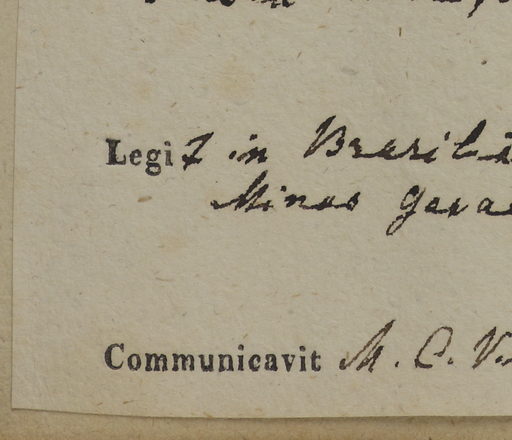 Legit in Brasili
Minas Gerae
Communicavit M. C. V